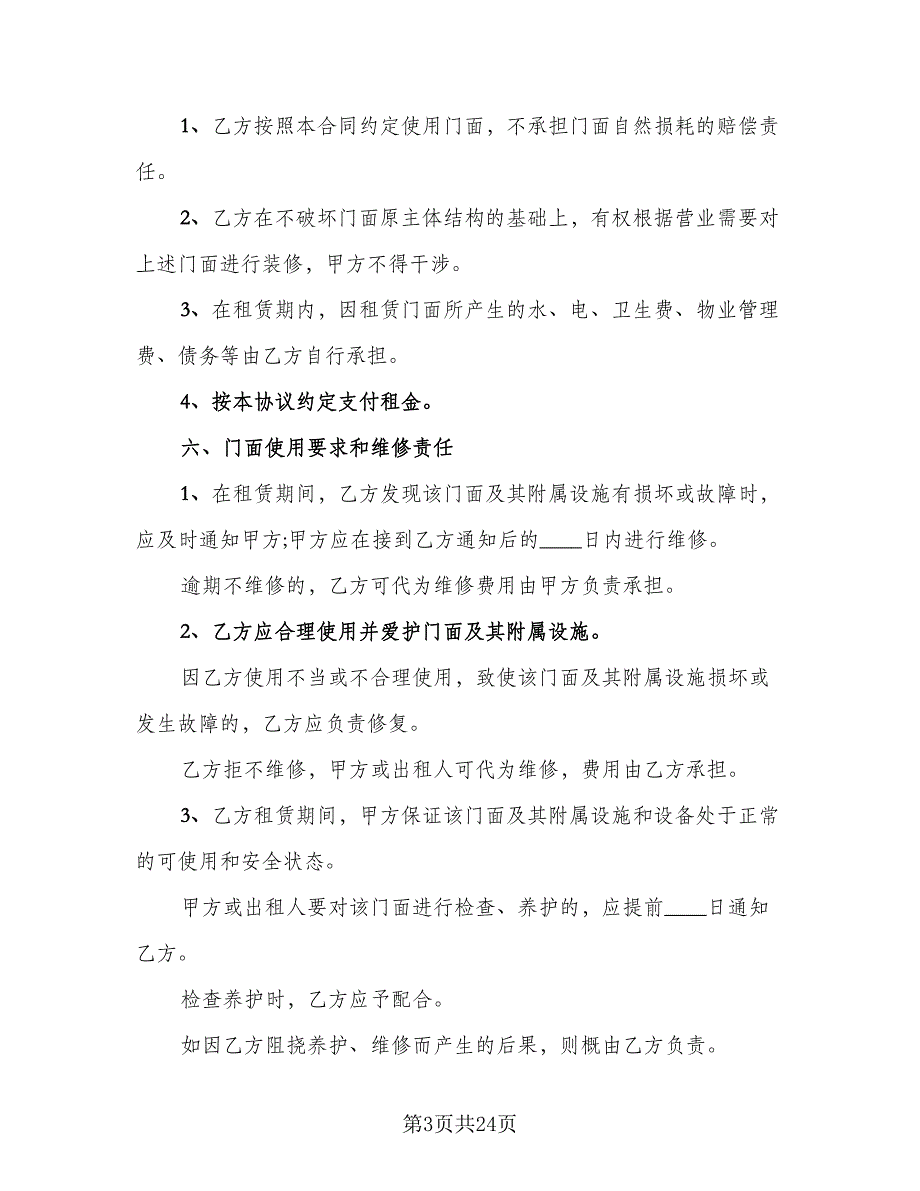 1、乙方按照本合同约定使用门面，不承担门面自然损耗的赔偿责
任。
2、乙方在不破坏门面原主体结构的基础上，有权根据营业需要对
上述门面进行装修，甲方不得干涉。
3、在租赁期内，因租赁门面所产生的水、电、卫生费、物业管理
费、债务等由乙方自行承担。
4、按本协议约定支付租金。
六、门面使用要求和维修责任
1、在租赁期间，乙方发现该门面及其附属设施有损坏或故障时，
应及时通知甲方;甲方应在接到乙方通知后的____日内进行维修。
逾期不维修的，乙方可代为维修费用由甲方负责承担。
2、乙方应合理使用并爱护门面及其附属设施。
因乙方使用不当或不合理使用，致使该门面及其附属设施损坏或
发生故障的，乙方应负责修复。
乙方拒不维修，甲方或出租人可代为维修，费用由乙方承担。
3、乙方租赁期间，甲方保证该门面及其附属设施和设备处于正常
的可使用和安全状态。
甲方或出租人要对该门面进行检查、养护的，应提前____日通知
乙方。
检查养护时，乙方应予配合。
如因乙方阻挠养护、维修而产生的后果，则概由乙方负责。
第3页共24页